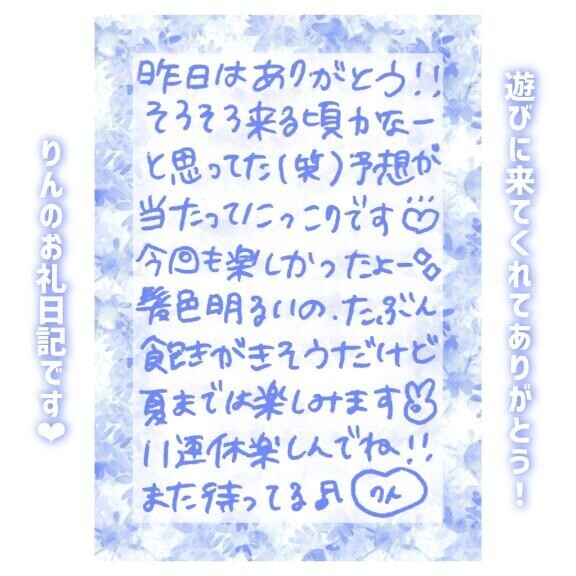 遊びに来てくれてありがとう！
昨日はありがとう!!
そろそろ来る頃かなー
と思ってた(笑)予想が
当たってにっこりです♡
今回も楽しかったよー
髪色明るいの、たぶん
飽きがきそうだけど
夏までは楽しみます
11連休楽しんでね!!
また待ってる♬ りん
りんのお礼日記です❤